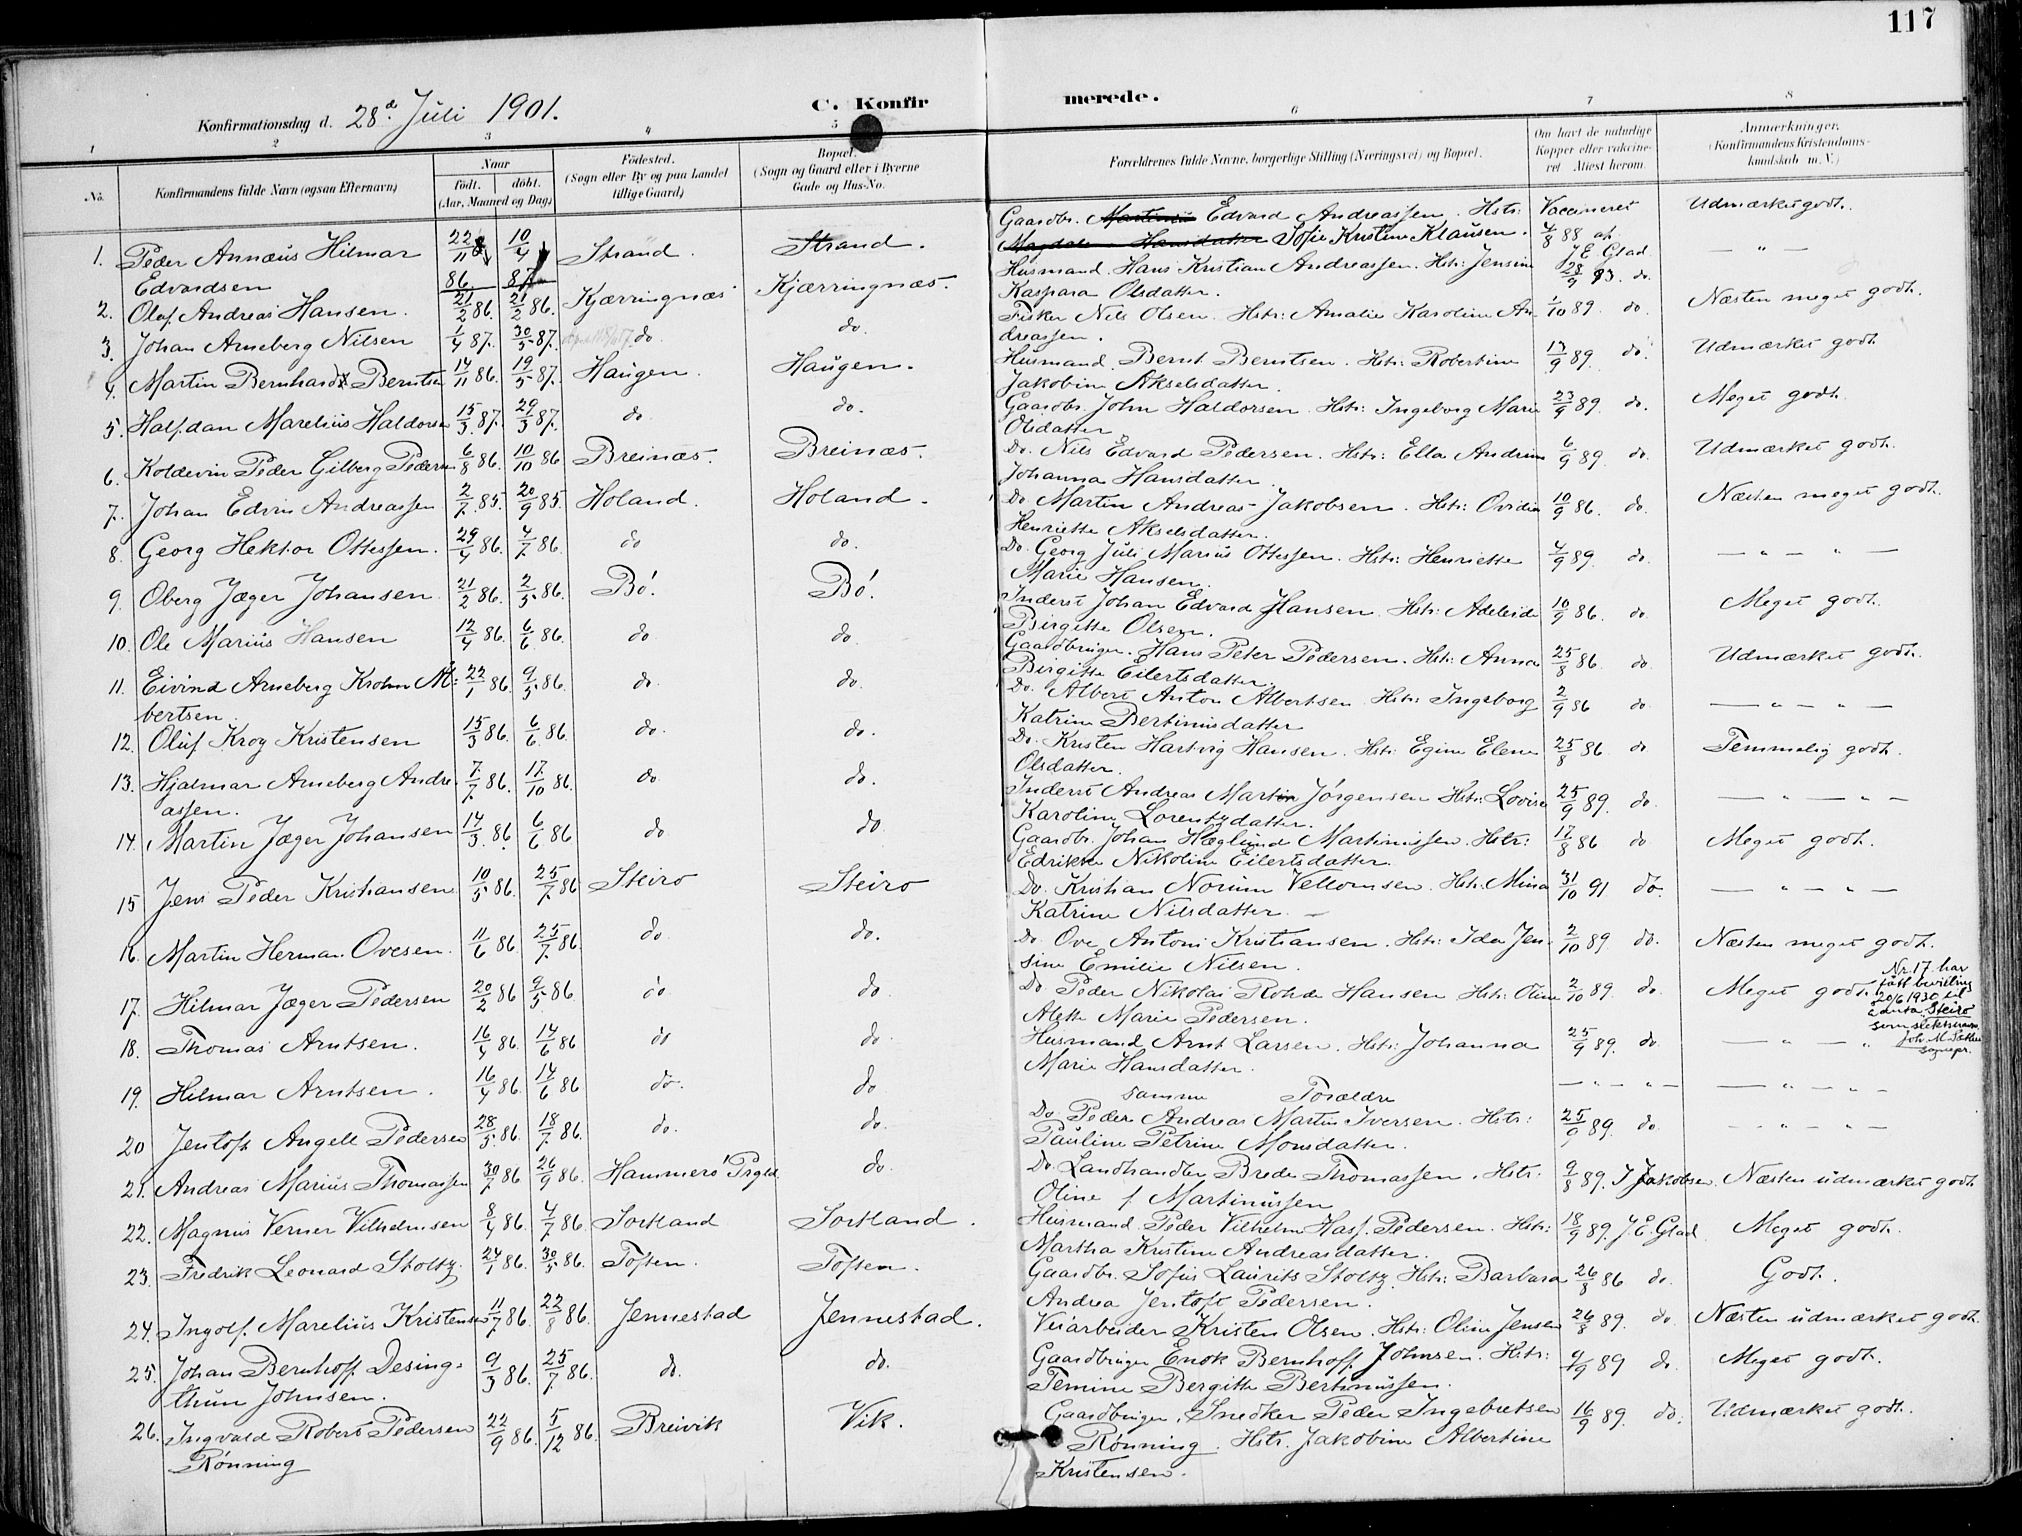 117
Konfirmationsdag d. 28d Juli 1901.
C. Konfir merede.
1 2 3 4 5 6 7 8
No.
Konfirmandens fulde Navn (ogsaa Efternavn)
Naar
født. døbt.
(Aar, Maaned og Dag)
Fødested.
(Sogn eller By og paa Landet
tillige Gaard)
Bopæl.
(Sogn og Gaard eller i Byerne
Gade og Hus-No.
Forældrenes fulde Navne, borgerlige Stilling (Næringsvei) og Bopæl.
Om havt de naturlige
Kopper eller vakcine-
ret Attest herom.
Anmærkninger.
(Konfirmandens Kristendoms-
kundskab m. V.)
Gaardbr. Martinus Edvard Andreassen. Hstr: Vaccineret Udmærket godt.
1. Peder Annæus Hilmar 22/11 10/4 Strand. Strand. Magdale Hansdatter Sofie Kristine Klausen. 4/8 88 af J.E. Glad
Edvardsen 86 87 Husmand. Hans Kristian Andreassen. Hstr: Jensine 28/9 93. do. — " —
2. Olaf Andreas Hansen. 21/2 86. 21/2 86. Kjærringnæs Kjærringnæs. Kaspara Olsdatter.
Fisker Nils Olsen. Hstr: Amalie Karoline An- 1/10 89. do. Næsten meget godt.
3. Johan Arneberg Nilsen 1/4 87. 30/5 87. do. do. dreassen.
Husmand. Bernt Berntsen. Hstr: Robertine 13/9 89. do. Udmærket godt
4. Martin Bernhard Berntsen 14/11 86. 19/5 87. Haugen. Haugen. Jakobine Akselsdatter.
Gaardbr. John Haldorsen. Hstr: Ingeborg Marie 23/9 89. do. Meget godt.
5. Halfdan Marelius Haldorsen 15/3 87. 29/3 87. do. do. Olsdatter
Do. Nils Edvard Pedersen. Hstr: Ella Andrine 6/9 89. do. Udmærket godt.
6. Koldevin Peder Gilberg Pedersen 6/8 86. 10/10 86 Breinæs. Breinæs. Johanna Hansdatter.
Do Martin Andreas Jakobsen. Hstr: Ovidia 10/9 86. do. Næsten meget godt.
7. Johan Edvin Andreassen 2/7 85. 20/9 85. Holand. Holand. Henriette Akselsdatter.
Do. Georg Juli Marius Ottessen. Hstr: Henriette 4/9 89. do. — " — " —
8. Georg Hektor Ottessen. 29/4 86. 4/7 86. do do. Marie Hansen.
Inderst Johan Edvard Hansen. Hstr: Adeleide 10/9 86. do. Meget godt.
9. Oberg Jæger Johansen 21/2 86. 2/5 86. Bø. Bø. Birgitte Olsen.
Gaardbruger. Hans Peter Pedersen. Hstr: Anna 25/8 86 do. Udmærket godt.
10. Ole Marius Hansen 12/4 86. 6/6 86. do do. Birgitte Eilertsdatter.
Do. Albert Anton Albertsen. Hstr: Ingeborg 2/9 86 do — " — " —
11. Eivind Arneberg Krohn Al- 22/1 86. 9/5 86. do. do. Katrine Bertinusdatter
bertsen.
Do. Kristen Hartvig Hansen. Hstr: Egine Elene 25/8 86. do Temmelig godt.
12. Oluf Kroy Kristensen 15/3 86. 6/6 86. do. do. Olsdatter.
Inderst Andreas Martin Jørgensen Hstr: Lovise 25/9 89. do. — " — " —
13. Hjalmar Arneberg Andre- 7/7 86. 17/10 86. do do. Karoline Lorentzdatter.
assen.
Gaardbr. Johan Høglund Martinussen. Hstr: 17/8 86 do Meget godt.
14. Martin Jæger Johansen 14/3 86. 6/6 86 do do Edrikke Nikoline Eilertsdatter.
Do. Kristian Norum Vellomsen. Hstr: Mina 31/10 91 do. — " — " —
15 Jens Peder Kristiansen 10/5 86. 25/7 86 Steiro Steiro Katrine Nilsdatter. —
Do. Ove Antoni Kristiansen. Hstr: Ida Jen- 2/10 89. do. Næsten meget godt.
16. Martin Herman Ovesen. 11/6 86. 25/7 86. do do. sine Emilie Nilsen.
Do Peder Nikolai Rohde Hansen Hstr: Oline 2/10 89. do. Meget godt.
Nr. 17 har
fått bevilling
20/6 1930 til
å anta Steiro
som slektsnavn
Joh. M.
sognepr.
17. Hilmar Jæger Pedersen 20/2 86 9/5 86. do do Alette Marie Pedersen.
Husmand Arnt Larsen. Hstr: Johanna 25/9 89. do. — " — "
18. Thomas Arntsen. 16/4 86. 14/6 86 do do. Marie Hansdatter.
19. Hilmar Arntsen. 16/4 86. 14/6 86 do. do samme Forældre — " — " — — " — " —
Do Peder Andreas Martin Iversen. Hstr: 25/9 89. do. — " — " —
20 Jentoft Angell Pedersen 28/5 86. 18/7 86. do. do. Pauline Petrine Monsdatter.
Do. Landhandler Brede Thomassen. Hstr: 9/8 89. I Jakobsen. Næsten udmærket godt
21. Andreas Marius Thomassen 30/7 86 26/9 86. Hammerø Prgld. do. Oline f Martinussen
Husmand Peder Vilhelm Hass. Pedersen. Hstr: 18/9 89. J.E. Glad Meget godt.
22. Magnus Verner Vilhelmsen 8/4 86. 4/7 86. Sortland Sortland. Martha Kristine Andreasdatter.
Gaardbr. Sofus Laurits Stoltz. Hstr: Barbara 26/8 86 do. Godt.
23. Fredrik Leonard Stoltz. 24/1 86. 30/5 86. Toften. Toften. Andrea Jentoft Pedersen.
Veiarbeider Kristen Olsen. Hstr: Oline Jensen 26/8 89. do. Næsten udmærket godt.
24. Ingolf Marelius Kristensen 11/7 86. 22/8 86. Jennestad Jennestad.
Gaardbruger Enok Bernhoff Johnsen. Hstr: 9/9 89 do. Meget godt.
25. Johan Bernhoff Desing- 9/3 86. 25/7 86. do. do. Temine Bergitte Bertinussen.
thun Johnsen.
Gaardbruger. Snedker Peder Ingebretsen 16/9 89. do. Udmærket godt.
26. Ingvald Robert Pedersen 22/9 86. 5/12 86. Breivik Vik. Rønning. Hstr. Jakobine Albertine
Rønning Kristensen.